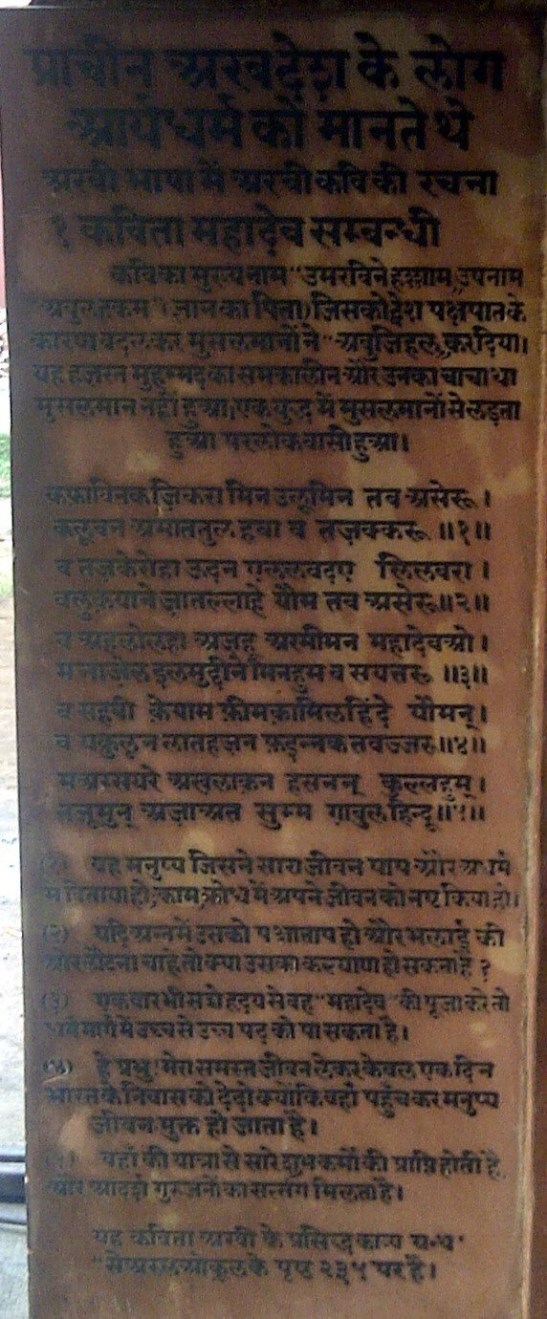 प्राचीन अरवदेश के लोग
आर्यधर्म को मानते थे
अरवी भाषा में अरवी कवि की रचना
१ कविता महादेव सम्बन्धी
कवि का मुख्य नाम "उमरविने हश्शाम", उपनाम
"अवुलहकम" (ज्ञान का पिता) जिसको द्वेश पक्षपात के
कारण बदलकर मुसलमानों ने "अवुजिहल" कर दिया।
यह हजरत मुहम्मद का समकालीन और उनका चाचा था
मुसलमान नहीं हुआ, एक युद्ध में मुसलमानों से लड़ता
हुआ परलोकवासी हुआ।
कफ़ाविनक ज़िकरा मिन उलूमिन तव असेरू।
कलूवन अमाततुल हवा व तज़क्करू॥१॥
व तज़केरोहा उदन एललवदए लिलवरा।
वलुकयाने ज़ातल्लाहे यौम तव असेरू॥२॥
व अहलोलहा अजहू अरमीमन महादेवओ।
मनाजेल इलमुद्दीने मिनहुम व सयत्तरू॥३॥
व सहवी केयाम फ़ीमकामिलहिंदे यौमन्।
व यकुलून लातहज़न फ़इन्नक तवज्जरू॥४॥
मअस्सयरे अख़लाक़न हसनन् कुल्लहुम्।
नजूमुन् अज़ाअत सुम्म ग़ावुलहिन्दू॥५॥
(१) वह मनुष्य जिसने सारा जीवन पाप और अधर्म
में विताया हो, काम, क्रोध में अपने जीवन को नष्ट किया हो।
(२) यदि अन्त में उसको पश्चाताप हो और भलाई की
ओर लौटना चाहे तो क्या उसका कल्याण हो सकता है ?
(३) एक बार भी सच्चे हृदय से वह "महादेव" की पूजा करे तो
धर्म मार्ग में उच्च से उच्च पद को पा सकता है।
(४) हे प्रभु! मेरा समस्त जीवन लेकर केवल एक दिन
भारत के निवास को देदो क्योंकि वहाँ पहुँचकर मनुष्य
जीवन मुक्त हो जाता है।
(५) वहाँ की यात्रा से सारे शुभ कर्मों की प्राप्ति होती है,
और आदर्श गुरुजनों का सत्संग मिलता है।
यह कविता अरवी के प्रसिद्ध काव्य ग्रन्थ
"सेअरुलओकूल के पृष्ठ २३५ पर है।